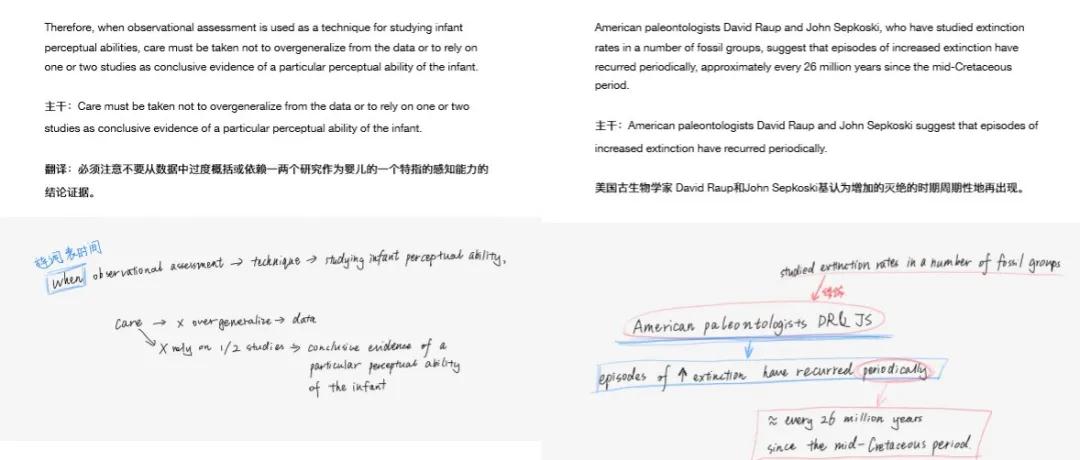 Therefore, when observational assessment is used as a technique for studying infant
perceptual abilities, care must be taken not to overgeneralize from the data or to rely on
one or two studies as conclusive evidence of a particular perceptual ability of the infant.
主干：Care must be taken not to overgeneralize from the data or to rely on one or two
studies as conclusive evidence of a particular perceptual ability of the infant.
翻译：必须注意不要从数据中过度概括或依赖一两个研究作为婴儿的一个特指的感知能力的
结论证据。
连词表时间
when observational assessment → technique → studying infant perceptual ability,
care → x overgeneralize → data
x rely on 1/2 studies → conclusive evidence of a
particular perceptual ability
of the infant
American paleontologists David Raup and John Sepkoski, who have studied extinction
rates in a number of fossil groups, suggest that episodes of increased extinction have
recurred periodically, approximately every 26 million years since the mid-Cretaceous
period.
主干：American paleontologists David Raup and John Sepkoski suggest that episodes of
increased extinction have recurred periodically.
美国古生物学家 David Raup和John Sepkoski基认为增加的灭绝的时期周期性地再出现。
studied extinction rates in a number of fossil groups
修饰
American paleontologists DR& JS
episodes of ↑ extinction have recurred periodically
≈ every 26 million years
since the mid-Cretaceous period.